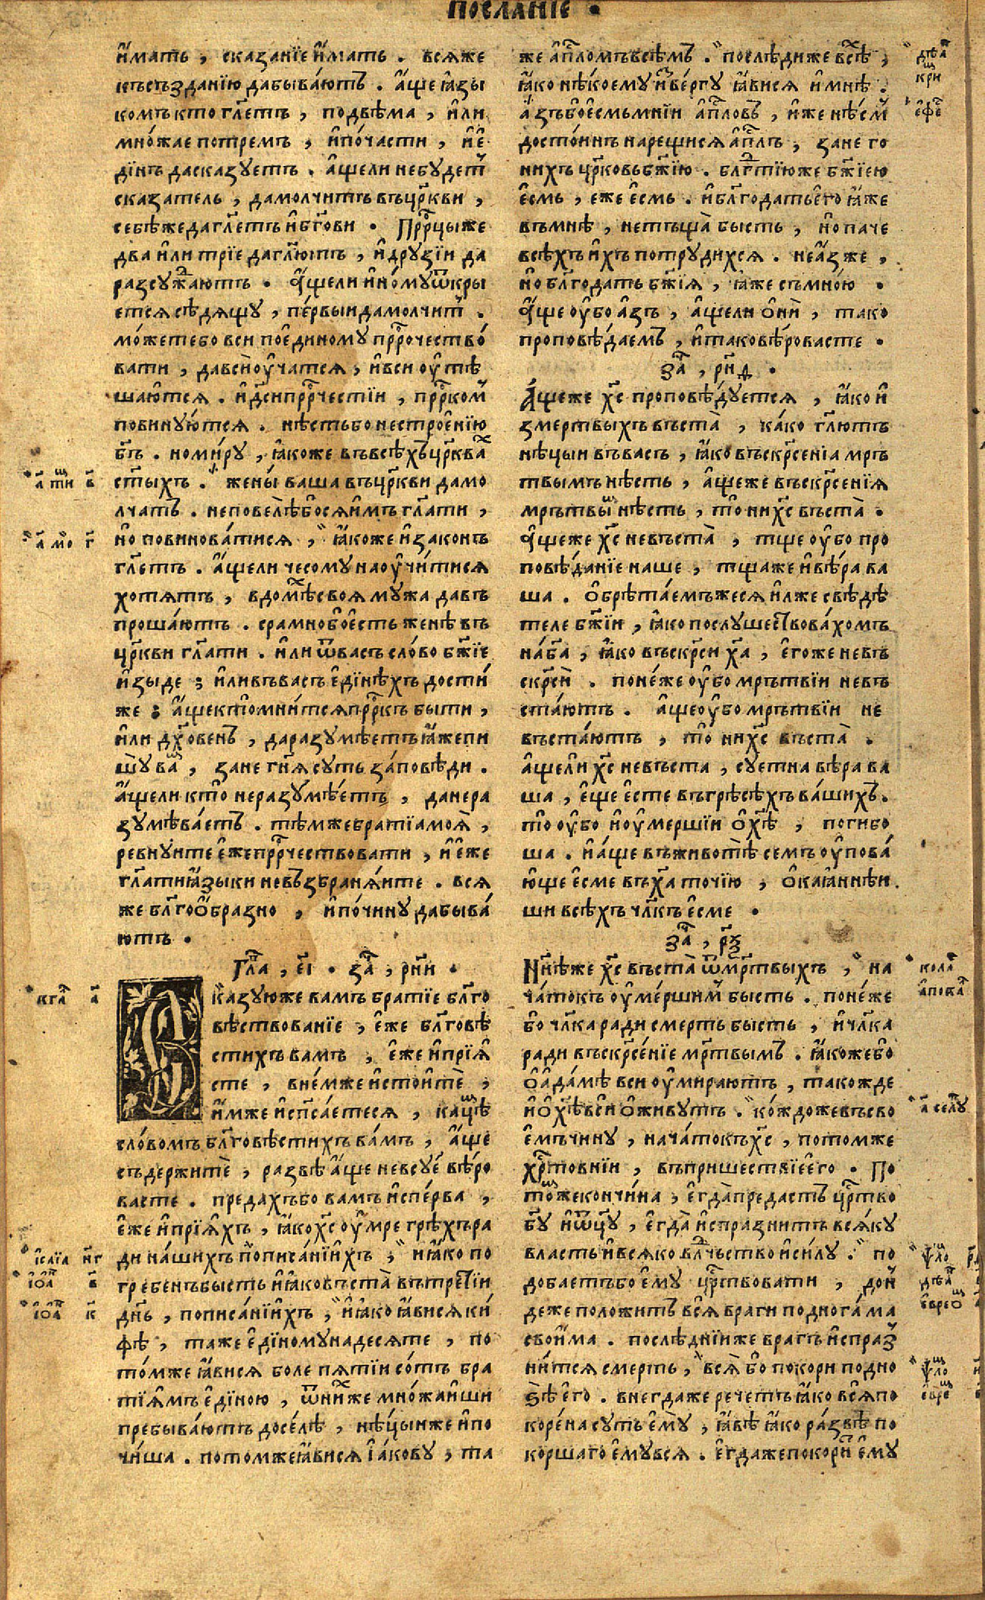 посланїе •
и҆́мать , сказанїе и҆́мать . всѧже
къ създанїю да бываютъ . а҆́ще ꙗ҆зы
комъ кто гл҃етъ , по двѣма , и҆ли
мно́жае по тремъ , и҆ по́ части , и҆ є҆
ди́нъ да сказуетъ . а҆́ще ли не будет̾
сказатель , да молчитъ въ цр҃кви ,
себѣ́ же да гл҃етъ и҆ бг҃ови . Прр҃цы же
два и҆ли трїе да гл҃ютъ , и҆ друзїи да
разсужⷣаютъ . А҆́ще ли и҆но́му ѿкры
етсѧ сѣдѧщу , пе́рвыи да молчит̾ .
мо́жете бо вси по є҆диному прⷪ҇рочество́
вати , да вси оу҆́чатсѧ , и҆ вси оу҆тѣ
ша́ютсѧ . и҆ дс҃и прⷪ҇рчестїи , прⷪ҇рком̾
повину́ютсѧ . нѣ́сть бо нестрое́нїю
бг҃ъ . но ми́ру , ꙗ҆́коже въ всѣ́хъ цр҃квахъ
ст҃ыхъ . жены̀ ваша въ цр҃кви да мо
лча́тъ . не повелѣ́ бо сѧ и҆̀мъ гл҃ати ,
но̀ повинова́тисѧ , ꙗ҆́коже и҆ законъ
гл҃етъ . а҆́ще ли чесому наоу҆чи́тисѧ
хотѧ́тъ , в домⷯѣ своѧ му́жа да въ
проша́ютъ . срамно бо є҆́сть женѣ̀ въ
цр҃кви гл҃ати . и҆ли ѿ васъ сло́во бж҃їе
и҆зыде ; и҆ли въ васъ є҆ди́нѣхъ дости́
же ; а҆́ще кто̀ мни́тсѧ прⷪ҇ркъ бы́ти ,
и҆ли дх҃о́венъ , да разумѣ́етъ ꙗ҆́же пи
шу̀ ваⷨ , зане гн҃ѧ суть за́повѣди .
а҆́ще ли кто̀ не разумѣ́етъ , да не ра
зумѣва́етъ . тѣ́мже братїа моѧ̀ ,
ревнуите є҆́же прⷪ҇рчествовати , и҆ є҆́же
гл҃ати ꙗ҆зы́ки не възбранѧ́ите . всѧ
же бл҃гоо҆́бразно , и҆ по чи́ну да быва́
ютъ .
Гл҃а , є҃і . заⷱ҇ , рн҃и .
Сказую же вамъ братїе бл҃го
вѣ́ствованїе , є҆́же бл҃говѣ
стихъ вамъ , є҆́же и҆ прїѧ́
сте , в не́мже и҆ стоитѐ ,
и҆́мже и҆ сп҃са́етесѧ , кацⷨѣ
сло́вомъ бл҃говѣ́стихъ ва́мъ , а҆́ще
съдержитѐ , ра́звѣ а҆́ще не всуе вѣ́ро
ва́сте . предахъ бо вамъ и҆спе́рва ,
є҆́же и҆ прїѧ́хъ , ꙗ҆́ко хс҃ оу҆́мре грѣ́хъ ра
ди на́шихъ по писа́нїихъ ; и҆ ꙗ҆́ко по
гребе́нъ бысть и҆ ꙗ҆́ко въста̀ въ тре́тїи
дн҃ь , по писа́нїихъ , и҆ ꙗ҆́ко ꙗ҆ви́сѧ ки́
фѣ , таже є҆ди́ному на́десѧте , по
то́мже ꙗ҆ви́сѧ боле пѧтїи со́тъ бра
тїѧ́мъ є҆ди́ною , ѿ ни́хже мно́жаиши
пребыва́ютъ досе́лѣ , нѣ́цыи же и҆ по
чи́ша . пото́мже ꙗ҆ви́сѧ і҆а́кову , та
же а҆пⷭ҇ломъ всѣ́мъ . послѣди же всѣⷯ ,
ꙗ҆́ко нѣ́коему и҆зве́ргу ꙗ҆ви́сѧ и҆ мнѣ .
а҆́зъ бо є҆́смь мнїи а҆пⷭ҇ловъ , и҆́же нѣ́см̾
досто́инъ нарещисѧ а҆пⷭ҇лъ , зане го
нихъ цр҃ковь бж҃їю . бл҃гдⷣтїю же бж҃їею
є҆́смь , еже є҆́смь . и҆ бл҃года́ть є҆го̀ ꙗ҆́же
въ мнѣ́ , не тъща̀ бысть , но̀ паче
всѣ́хъ и҆́хъ потруди́хсѧ . не а҆́з же ,
но̀ бл҃года́ть бж҃їѧ , ꙗ҆́же съ мно́ю .
А҆́ще оу҆́бо а҆́зъ , а҆́ще ли ѻ҆нѝ , тако
проповѣ́даемъ , и҆ та́ко вѣ́ровасте .
заⷱ҇ , рн҃ѳ .
А҆́ще же хс҃ проповѣ́дуетсѧ , ꙗ҆́ко и҆
змертвыхъ въста̀ , ка́ко гл҃ютъ
нѣ́цыи въ васъ , ꙗ҆́ко въскрⷭ҇енїа мръ
твымъ нѣсть , а҆́ще же въскрⷭ҇енїѧ
мръ́твыⷨ нѣ́сть , то̀ ни хс҃ въста̀ .
А҆́ще же хс҃ не въста̀ , тще оу҆́бо про
повѣ́данїе наше , тща же и҆ вѣ́ра ва
ша . Ѻ҆брѣта́емъ же сѧ и҆ лже свѣ́дѣ
теле бж҃їи , ꙗ҆́ко послушествова́хомъ
на́ бг҃а , ꙗ҆́ко въскрⷭ҇и ха҃ , є҆го́же не въ
скрⷭ҇ѝ . понеже оу҆́бо мръ́твїи не въ
ста́ютъ . а҆́ще оу҆́бо мръ́твїи не
въста́ютъ , то̀ ни хс҃ въста̀ .
а҆́ще ли хс҃ не въста , суетна вѣ́ра ва
ша , є҆́ще є҆́сте въ грѣсѣ́хъ ва́шихъ .
то̀ оу҆́бо и҆ оу҆ме́ршїи ѻ҆ хⷭ҇ѣ , погибо
ша . и҆ а҆́ще въ животѣ́ семъ оу҆пова́
юще є҆сме въ ха҃ то́чїю , ѻ҆каа́ннѣи
ши всѣ́хъ чл҃къ є҆́сме .
заⷱ҇ , рѯ҃
Нн҃ѣ же хс҃ въста̀ ѿ мрⷭ҇твыхъ , на
ча́токъ оу҆ме́ршим̾ бысть . поне́же
бо чл҃ка ради смерть бысть , и҆ чл҃ка
ради въскрⷭ҇е́нїе мрⷭ҇твымъ . ꙗ҆́коже бо̀
ѻ҆ а҆да́мѣ вси оу҆мираютъ , такожде
и҆ ѻ҆ хⷭ҇ѣ вси ѻ҆живутъ . ко́ждо же въ сво
є҆́мъ чину , нача́токъ хс҃ , потомже
хрⷭ҇то́внїи , въ прише́ствїе є҆го̀ . По
то́мⷨже кончи́на , є҆гда̀ преда́стъ цр҃тво
бг҃у и҆ ѿц҃у , є҆гда̀ и҆спразнитъ всѧ́ку
власть и҆ всѧ́ко влⷣчьство и҆ си́лу . по
доба́етъ бо є҆му цр҃ствовати , до́н
деже положитъ всѧ̀ врагѝ под но́га ма
свои́ма . послѣ́днїи же врагъ и҆спраз̾
ни́тсѧ сме́рть , всѧ̀ бо покори под но
ѕѣ є҆го̀ . внегда же рече́тъ ꙗ҆́ко всѧ̀ по
коре́на суть є҆му̀ , ꙗ҆́вѣ ꙗ҆́ко ра́звѣ по
корша́го є҆му̀ всѧ . є҆гда́ же покорѝт є҆му̀